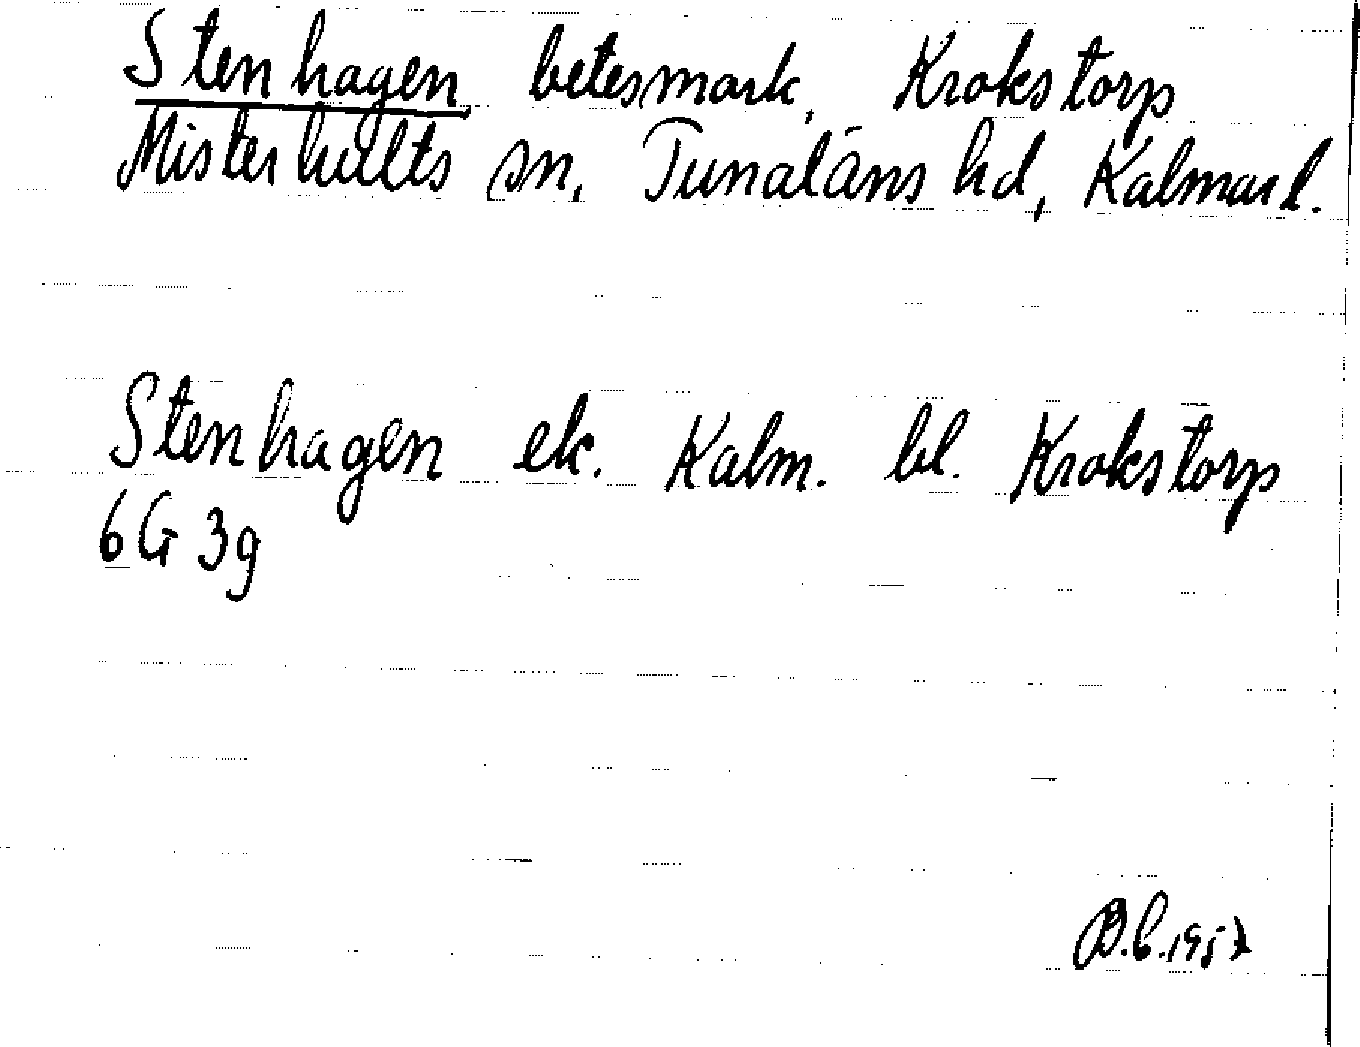 Stenhagen, betesmark, Krokstorp
Misterhults sn, Tunaläns hd, Kalmar l.
Stenhagen ek. Kalm. bl. Krokstorp
6G 3g